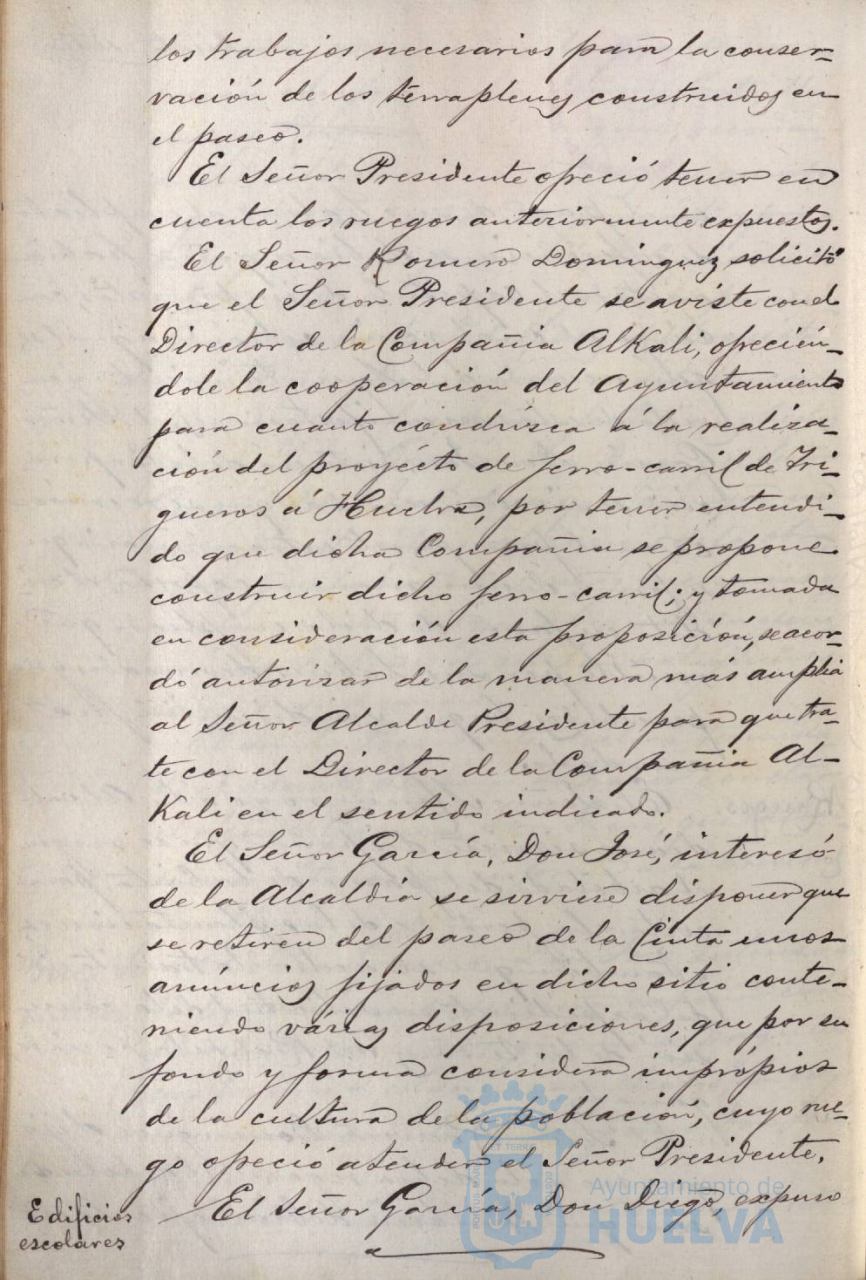 los trabajos necesarios para la conser-
vación de los terraplenes construidos en
el paseo.
El Señor Presidente ofreció tener en
cuenta los ruegos anteriormente expuestos.
El Señor Romero Dominguez solicitó
que el Señor Presidente se aviste con el
Director de la Compañia Alkali, ofrecién-
dole la cooperación del Ayuntamiento
para cuanto condúzca á la realiza-
ción del proyécto de ferro-carril de Tri-
gueros á Huelva, por tener entendi-
do que dicha Compañia se propone
construir dicho ferro-carril; y tomada
en consideración esta proposición, se acor-
dó autorizar de la manera más amplia
al Señor Alcalde Presidente para que tra-
te con el Director de la Compañia Al-
Kali en el sentido indicado.
El Señor García, Don José, interesó
de la Alcaldia se sirviese disponer que
se retiren del paseo de la Cinta unos
anúncios fijados en dicho sitio conte-
niendo várias disposiciones, que por su
fondo y forma considera impróprios
de la cultura de la población, cuyo rue-
go ofreció atender el Señor Presidente.
Edificios
escolares
El Señor García, Don Diego, expuso
Ayuntamiento de
HUELVA